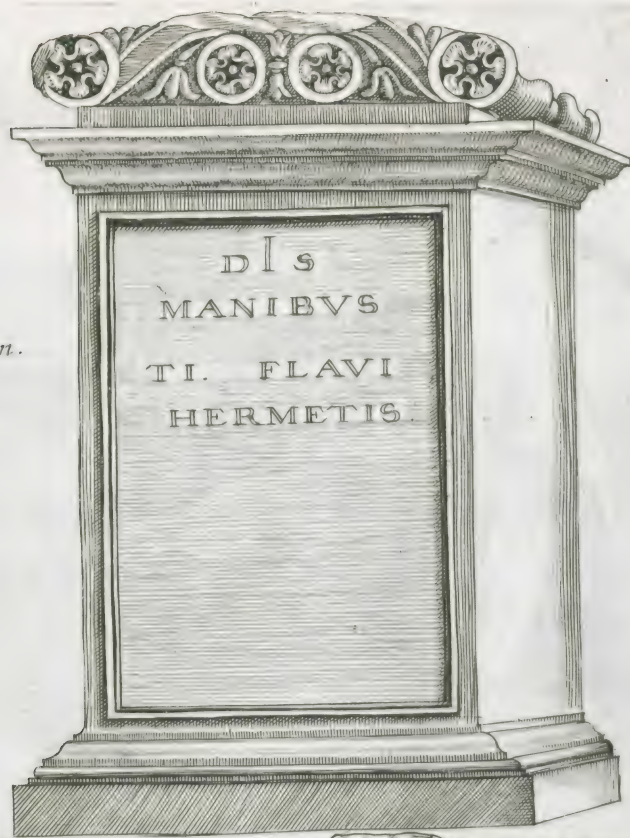 DIS
MANIBVS
TI. FLAVI
HERMETIS
n.